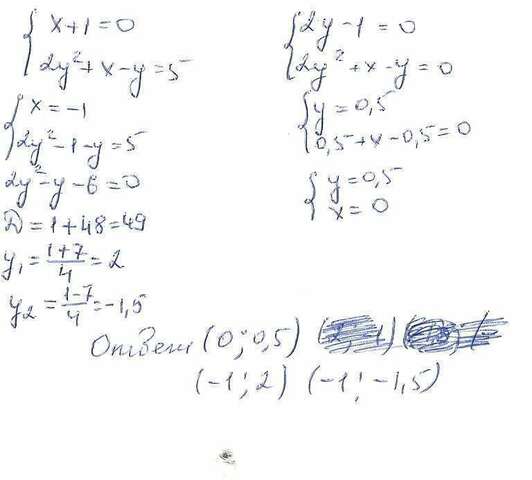 { x+1=0
2y²+x-y=5
{ x=-1
2y²-1-y=5
2y²-y-6=0
D=1+48=49
y₁=(1+7)/4=2
y₂=(1-7)/4=-1,5
{ 2y-1=0
2y²+x-y=0
{ y=0,5
0,5+x-0,5=0
{ y=0,5
x=0
Ответ (0;0,5)
(-1;2) (-1;-1,5)